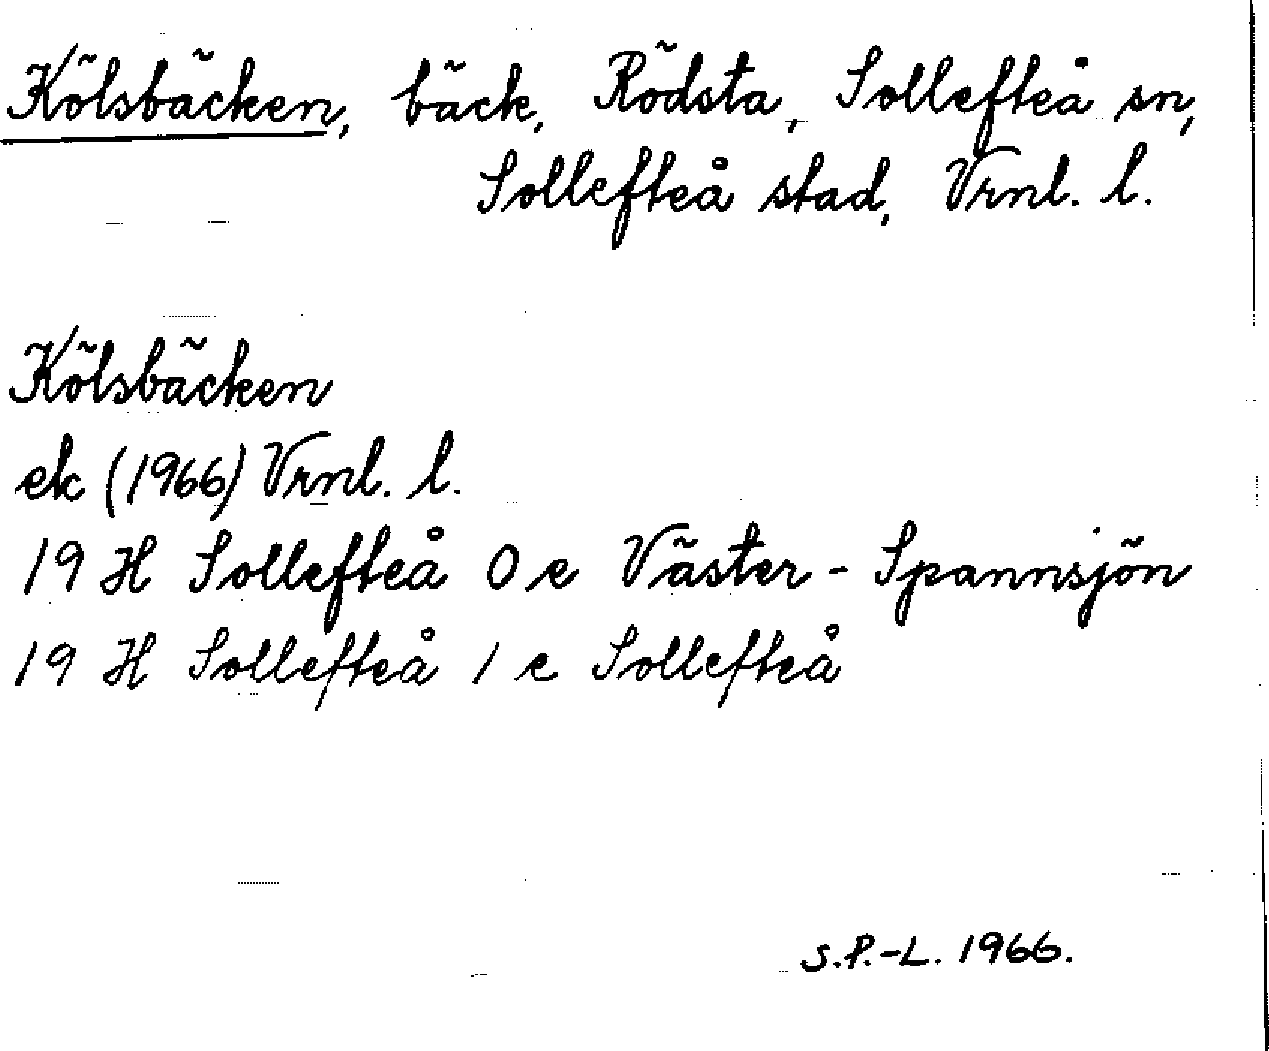 Kölsbäcken, bäck, Rödsta, Sollefteå sn,
Sollefteå stad, Vrnl. l.
Kölsbäcken
ek (1966) Vrnl. l.
19 H Sollefteå 0 e Väster-Spannsjön
19 H Sollefteå 1 e Sollefteå
S.P.-L. 1966.